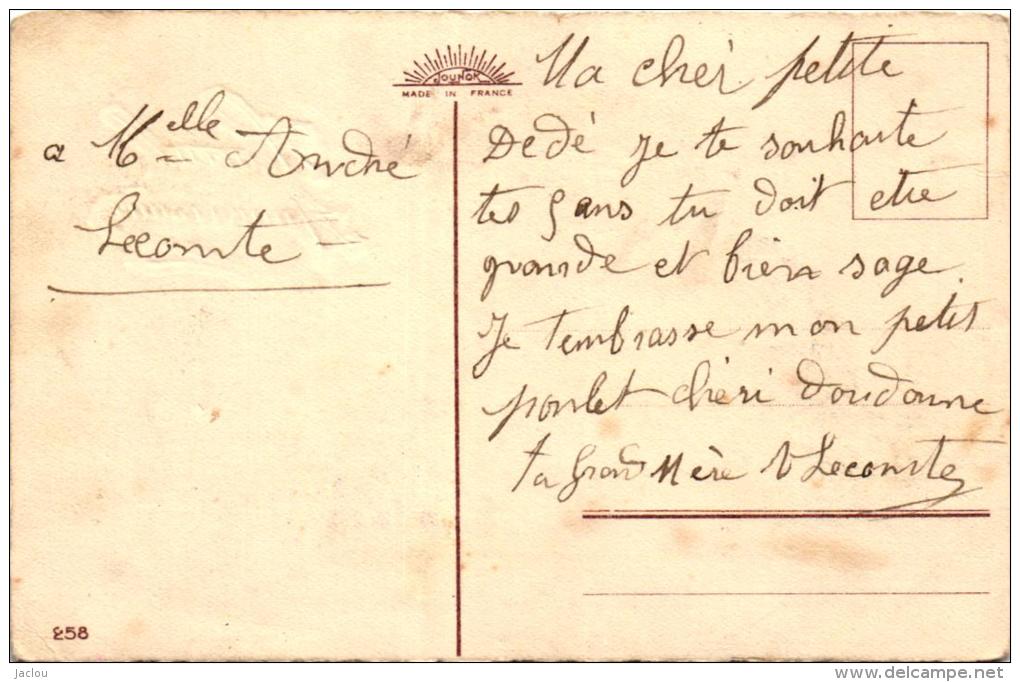 JOUNOK
MADE IN FRANCE
a Melle Andhé
Lecomte
Ma cher petite
Dedé Je te souhaite
tes 5 ans tu doit etre
grande et bien sage
Je tembrasse mon petit
poulet chéri doudoune
ta Grand Mère V Lecomte
258
jaclou
www.delcampe.net